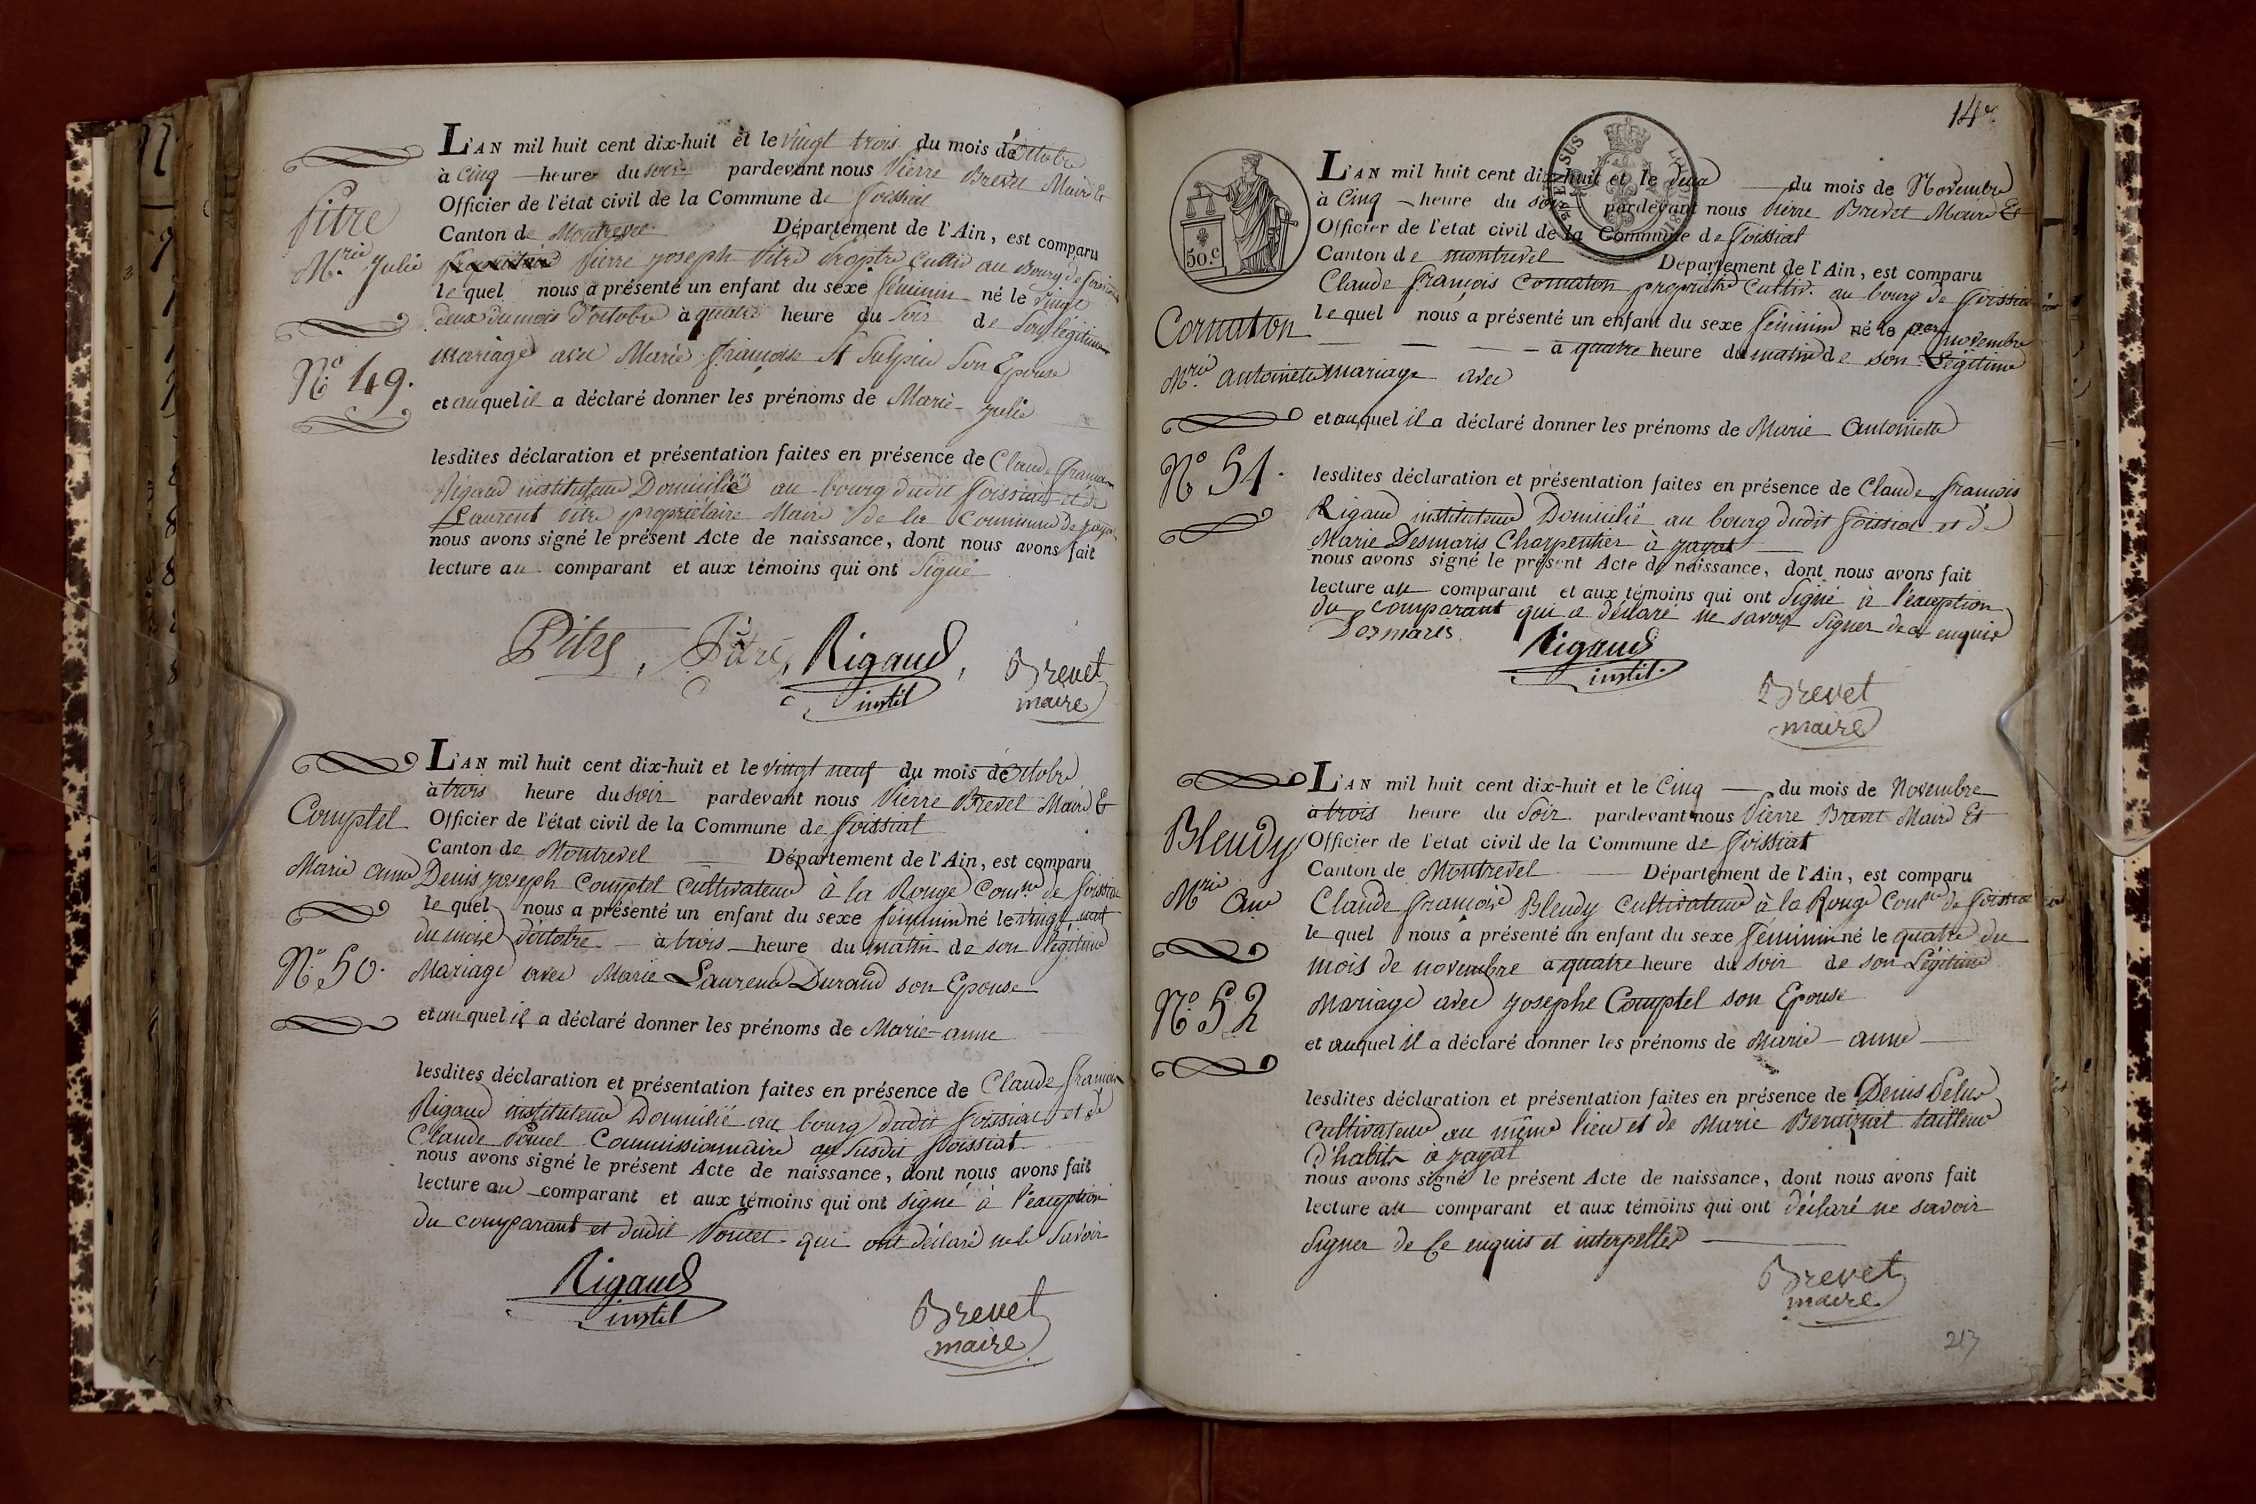 Pitre
M.rie Julie
N.o 49.
L'AN mil huit cent dix-huit et le vingt trois du mois d'octobre
à cinq heure du soir pardevant nous Pierre Brevet Maire Et
Officier de l'état civil de la Commune de foissiat
Canton de Montrevel Département de l'Ain, est comparu
pierre joseph Pitre Proptre Cultiv au Bourg de foissiat
lequel nous a présenté un enfant du sexe féminin né le vingt
deux du mois d'octobre à quatre heure du soir de son légitime
mariage avec Marie françoise St Sulpice son Epouse
et auquel il a déclaré donner les prénoms de Marie julie
lesdites déclaration et présentation faites en présence de Claude françois
Rigaud instituteur Domicilié au bourg dudit foissiat et de
Laurent Pitre propriétaire Maire de la Commune de jayat
nous avons signé le présent Acte de naissance, dont nous avons fait
lecture au comparant et aux témoins qui ont signé
Pitre, Pitre, Rigaud, Brevet
instit maire
Comptel
Marie anne
N.o 50.
L'AN mil huit cent dix-huit et le vingt neuf du mois d'octobre
à trois heure du soir pardevant nous Pierre Brevet Maire Et
Officier de l'état civil de la Commune de foissiat
Canton de Montrevel Département de l'Ain, est comparu
Denis joseph Comptel Cultivateur à la Rouge Com.ne de foissiat
lequel nous a présenté un enfant du sexe féminin né le vingt neuf
du mois d'octobre à trois heure du matin de son légitime
Mariage avec Marie Laurence Durand son Epouse
et auquel il a déclaré donner les prénoms de Marie-anne
lesdites déclaration et présentation faites en présence de Claude françois
Rigaud instituteur Domicilié au bourg dudit foissiat et de
Claude Commissionnaire au susdit foissiat
nous avons signé le présent Acte de naissance, dont nous avons fait
lecture au comparant et aux témoins qui ont signé à l'exception
du comparant et dudit qui ont déclaré ne le savoir
Rigaud
instit
Brevet
maire
14e
50.c
Cornaton
M.rie antoinette
N.o 51.
L'AN mil huit cent dix-huit et le deux du mois de Novembre
à Cinq heure du soir pardevant nous Pierre Brevet Maire Et
Officier de l'état civil de la Commune de foissiat
Canton de montrevel Département de l'Ain, est comparu
Claude françois Cornaton propriétre Cultiv. au bourg de foissiat
lequel nous a présenté un enfant du sexe féminin né le per novembre
à quatre heure du matin de son Légitime
mariage avec
et auquel il a déclaré donner les prénoms de Marie Antoinette
lesdites déclaration et présentation faites en présence de Claude françois
Rigaud instituteur Domicilié au bourg dudit foissiat et de
Marie Desmaris Charpentier à jayat
nous avons signé le présent Acte de naissance, dont nous avons fait
lecture au comparant et aux témoins qui ont signé à l'exception
du comparant qui a déclaré ne savoir signer de ce enquis
Desmaris
Rigaud
instit.
Brevet
maire
Bleudy
M.rie Anne
N.o 52
L'AN mil huit cent dix-huit et le Cinq du mois de Novembre
à trois heure du soir pardevant nous Pierre Brevet Maire Et
Officier de l'état civil de la Commune de foissiat
Canton de Montrevel Département de l'Ain, est comparu
Claude françois Bleudy Cultivateur à la Rouge Com.ne de foissiat
lequel nous a présenté un enfant du sexe féminin né le quatre du
mois de novembre à quatre heure du soir de son Légitime
Mariage avec josephe Comptel son Epouse
et auquel il a déclaré donner les prénoms de Marie-anne
lesdites déclaration et présentation faites en présence de Denis
Cultivateur au même lieu et de Marie tailleur
d'habits à jayat
nous avons signé le présent Acte de naissance, dont nous avons fait
lecture au comparant et aux témoins qui ont déclaré ne savoir
signer de Ce enquis et interpellés
Brevet
maire
213